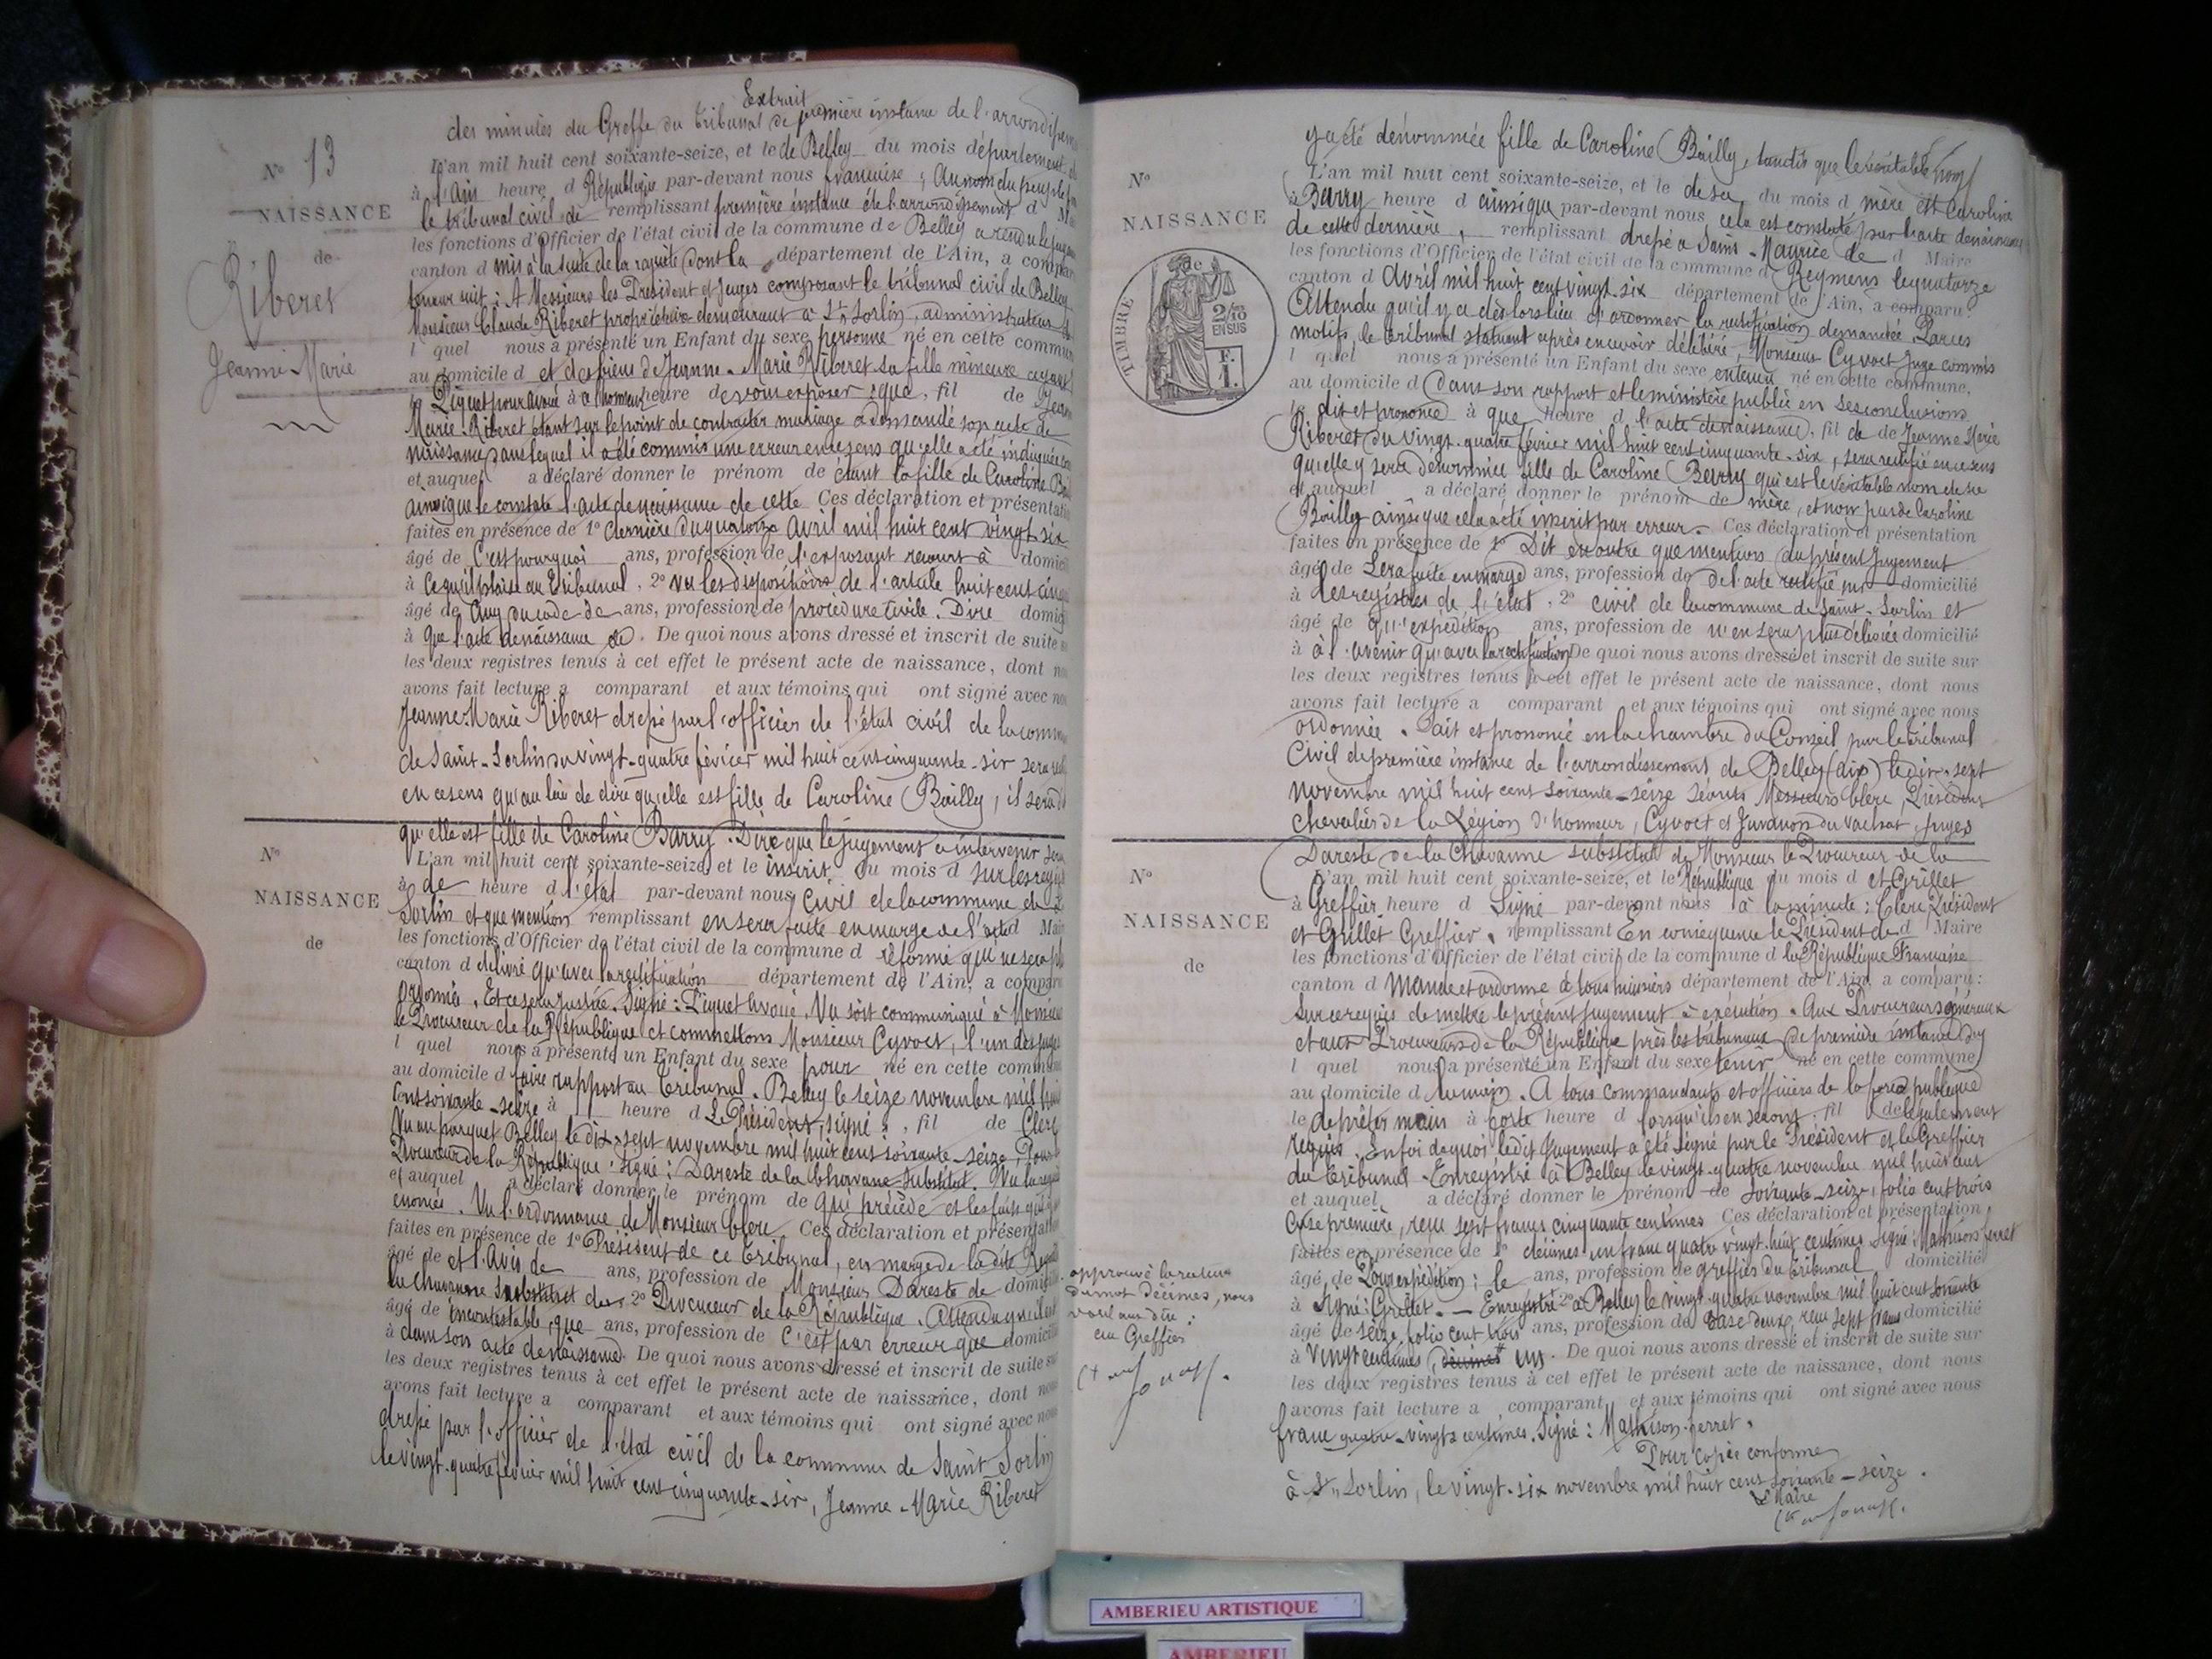 Extrait
des minutes du Greffe du Tribunal de première instance de l'arrondissem
No 13
L'an mil huit cent soixante-seize, et le de Belley du mois département de
à l'Ain heure d République par-devant nous française ; Au nom du peuple
NAISSANCE
le tribunal civil de remplissant première instance de l'arrondissement d M
les fonctions d'Officier de l'état civil de la commune de Belley a rendu le jugem
de
canton d mis à la suite de la requête dont la département de l'Ain, a compar
Riberet
teneur suit : A Messieurs les Président et Juges composant le tribunal civil de Belley
Monsieur Claude Riberet propriétaire demeurant à St Sorlin, administrateur
l quel nous a présenté un Enfant du sexe personne né en cette commun
Jeanne-Marie
au domicile d et des biens de Jeanne-Marie Riberet sa fille mineure ayant
le Piquet pour avoué à a l'honneur heure d e vous exposer : que, fil de Jeanne
Marie Riberet étant sur le point de contracter mariage a demandé son acte de
naissance dans lequel il a été commis une erreur en ce sens qu'elle a été indiquée
et auquel a déclaré donner le prénom de étant la fille de Caroline Ba
ainsi que le constate l'acte de naissance de cette Ces déclaration et présentati
faites en présence de 1o dernière du quatorze avril mil huit cent vingt six
âgé de C'est pourquoi ans, profession de l'exposant recourt à domici
à ce qu'il plaise au Tribunal, 2o vu les dispositions de l'article huit cent cinqu
âgé de cinq du code de ans, profession de procédure civile. Dire domici
à que l'acte de naissance de . De quoi nous avons dressé et inscrit de suite s
les deux registres tenus à cet effet le présent acte de naissance, dont n
avons fait lecture a comparant et aux témoins qui ont signé avec no
Jeanne-Marie Riberet dressé par l'officier de l'état civil de la comm
de Saint-Sorlin du vingt-quatre février mil huit cent cinquante-six sera
en ce sens qu'au lieu de dire qu'elle est fille de Caroline Bailly, il sera
qu'elle est fille de Caroline Barry. Dire que le jugement à intervenir sera
No
L'an mil huit cent soixante-seize, et le inscrit du mois d sur les
à de heure d l'état par-devant nous civil de la commune de
NAISSANCE
Sorlin et que mention remplissant en sera faite en marge de l'acte d Mai
les fonctions d'Officier de l'état civil de la commune d réformé qui ne sera
de
canton d délivré qu'avec la rectification département de l'Ain, a compar
ordonnée. Et ce sera justice. Signé : Piquet Avoué. Vu soit communiqué à Monsieur
le Procureur de la République et commettons Monsieur Cyvoct, l'un des juges
l quel nous a présenté un Enfant du sexe pour né en cette commu
au domicile d faire rapport au Tribunal. Belley le seize novembre mil huit
cent soixante-seize à heure d Le Président, signé : , fil de Clerc
Vu au parquet Belley le dix-sept novembre mil huit cent soixante-seize, Pour
Procureur de la République signé : Dareste de la Chavanne Substitut. Vu la
et auquel a déclaré donner le prénom de qui précède et les faits
énoncés. Vu l'ordonnance de Monsieur Clerc Ces déclaration et présentation
faites en présence de 1o Président de ce Tribunal, en marge de la dite
âgé de et l'Avis de ans, profession de Monsieur Dareste de domici
la Chavanne Substitut du 2o Procureur de la République. Attendu qu'il est
âgé de incontestable, que ans, profession de c'est par erreur que domici
à dans son acte de naissance. De quoi nous avons dressé et inscrit de suite su
les deux registres tenus à cet effet le présent acte de naissance, dont nous
avons fait lecture a comparant et aux témoins qui ont signé avec nou
dressé par l'officier de l'état civil de la commune de Saint-Sorlin
le vingt-quatre février mil huit cent cinquante-six, Jeanne-Marie Riberet
approuvé la rature
du mot décimes, nous
au Greffier
y a été dénommée fille de Caroline Bailly, tandis que le véritable nom
No
L'an mil huit cent soixante-seize, et le de sa du mois d mère est Caroline
à Barry heure d ainsi que par-devant nous cela est constaté par l'acte de naissance
NAISSANCE
de cette dernière, remplissant dressé à Saint-Maurice de d Maire
les fonctions d'Officier de l'état civil de la commune d Reymens le quatorze
de
canton d Avril mil huit cent vingt-six département de l'Ain, a comparu:
Attendu qu'il y a dès lors lieu d'ordonner la rectification demandée Par ces
motifs, le tribunal statuant après en avoir délibéré, Monsieur Cyvoct Juge commis
TIMBRE
2/10
EN SUS
F.
1.
l quel nous a présenté un Enfant du sexe entendu né en cette commune,
au domicile d dans son rapport et le ministère public en ses conclusions
le dit et prononce à que heure d l'acte de naissance, fil de de Jeanne Marie
Riberet du vingt-quatre février mil huit cent cinquante-six, sera rectifié en ce sens
qu'elle y sera dénommée fille de Caroline Barry qui est le véritable nom de sa
et auquel a déclaré donner le prénom de mère, et non pas de Caroline
Bailly ainsi que cela a été inscrit par erreur. Ces déclaration et présentation
faites en présence de 1o Dit en outre que mention du présent Jugement
âgé de sera faite en marge ans, profession de de l'acte rectifié sur domicilié
à les registres de l'état, 2o civil de la commune de Saint-Sorlin et
âgé de qu'expédition ans, profession de n'en sera plus délivrée domicilié
à à l'avenir qu'avec la rectification De quoi nous avons dressé et inscrit de suite sur
les deux registres tenus à cet effet le présent acte de naissance, dont nous
avons fait lecture a comparant et aux témoins qui ont signé avec nous
ordonnée. Fait et prononcé en la chambre du Conseil par le tribunal
Civil de première instance de l'arrondissement de Belley (dix) le dix-sept
novembre mil huit cent soixante-seize séants Messieurs Clerc, Président
chevalier de la Légion d'honneur, Cyvoct et Juvanon du Vachat, juges
Dareste de la Chavanne substitut de Monsieur le Procureur de la
No
L'an mil huit cent soixante-seize, et le République du mois d et Grillet
à Greffier heure d Signé par-devant nous à la minute : Clerc Président
NAISSANCE
et Grillet Greffier. remplissant En conséquence le Président de d Maire
les fonctions d'Officier de l'état civil de la commune d la République Française
de
canton d Mande et ordonne à tous huissiers département de l'Ain, a comparu:
sur ce requis de mettre le présent Jugement à exécution. Aux Procureurs généraux
et aux Procureurs de la République près les tribunaux de première instance d'y
l quel nous a présenté un Enfant du sexe tenir né en cette commune
au domicile d la main. A tous commandants et officiers de la force publique
le de prêter main à forte heure d lorsqu'ils en seront fil de légalement
requis. En foi de quoi le dit Jugement a été signé par le Président et le Greffier
du Tribunal. Enregistré à Belley le vingt-quatre novembre mil huit cent
et auquel a déclaré donner le prénom de soixante-seize, folio cent trois
case première, reçu sept francs cinquante centimes Ces déclaration et présentation
faites en présence de 1o décimes un franc quatre vingt-huit centimes signé Mathison ferret
âgé de Pour expédition : le ans, profession de greffier du tribunal domicilié
à signé : Grillet. — Enregistré 2o à Belley le vingt-quatre novembre mil huit cent soixante
âgé de seize, folio cent trois ans, profession de case deux, reçu sept francs domicilié
à vingt centimes, décimes un . De quoi nous avons dressé et inscrit de suite sur
les deux registres tenus à cet effet le présent acte de naissance, dont nous
avons fait lecture a comparant et aux témoins qui ont signé avec nous
franc quatre-vingts centimes. Signé : Mathison ferret.
Pour copie conforme
à St Sorlin, le vingt-six novembre mil huit cent soixante-seize.
Le Maire
AMBERIEU ARTISTIQUE
AMBERIEU